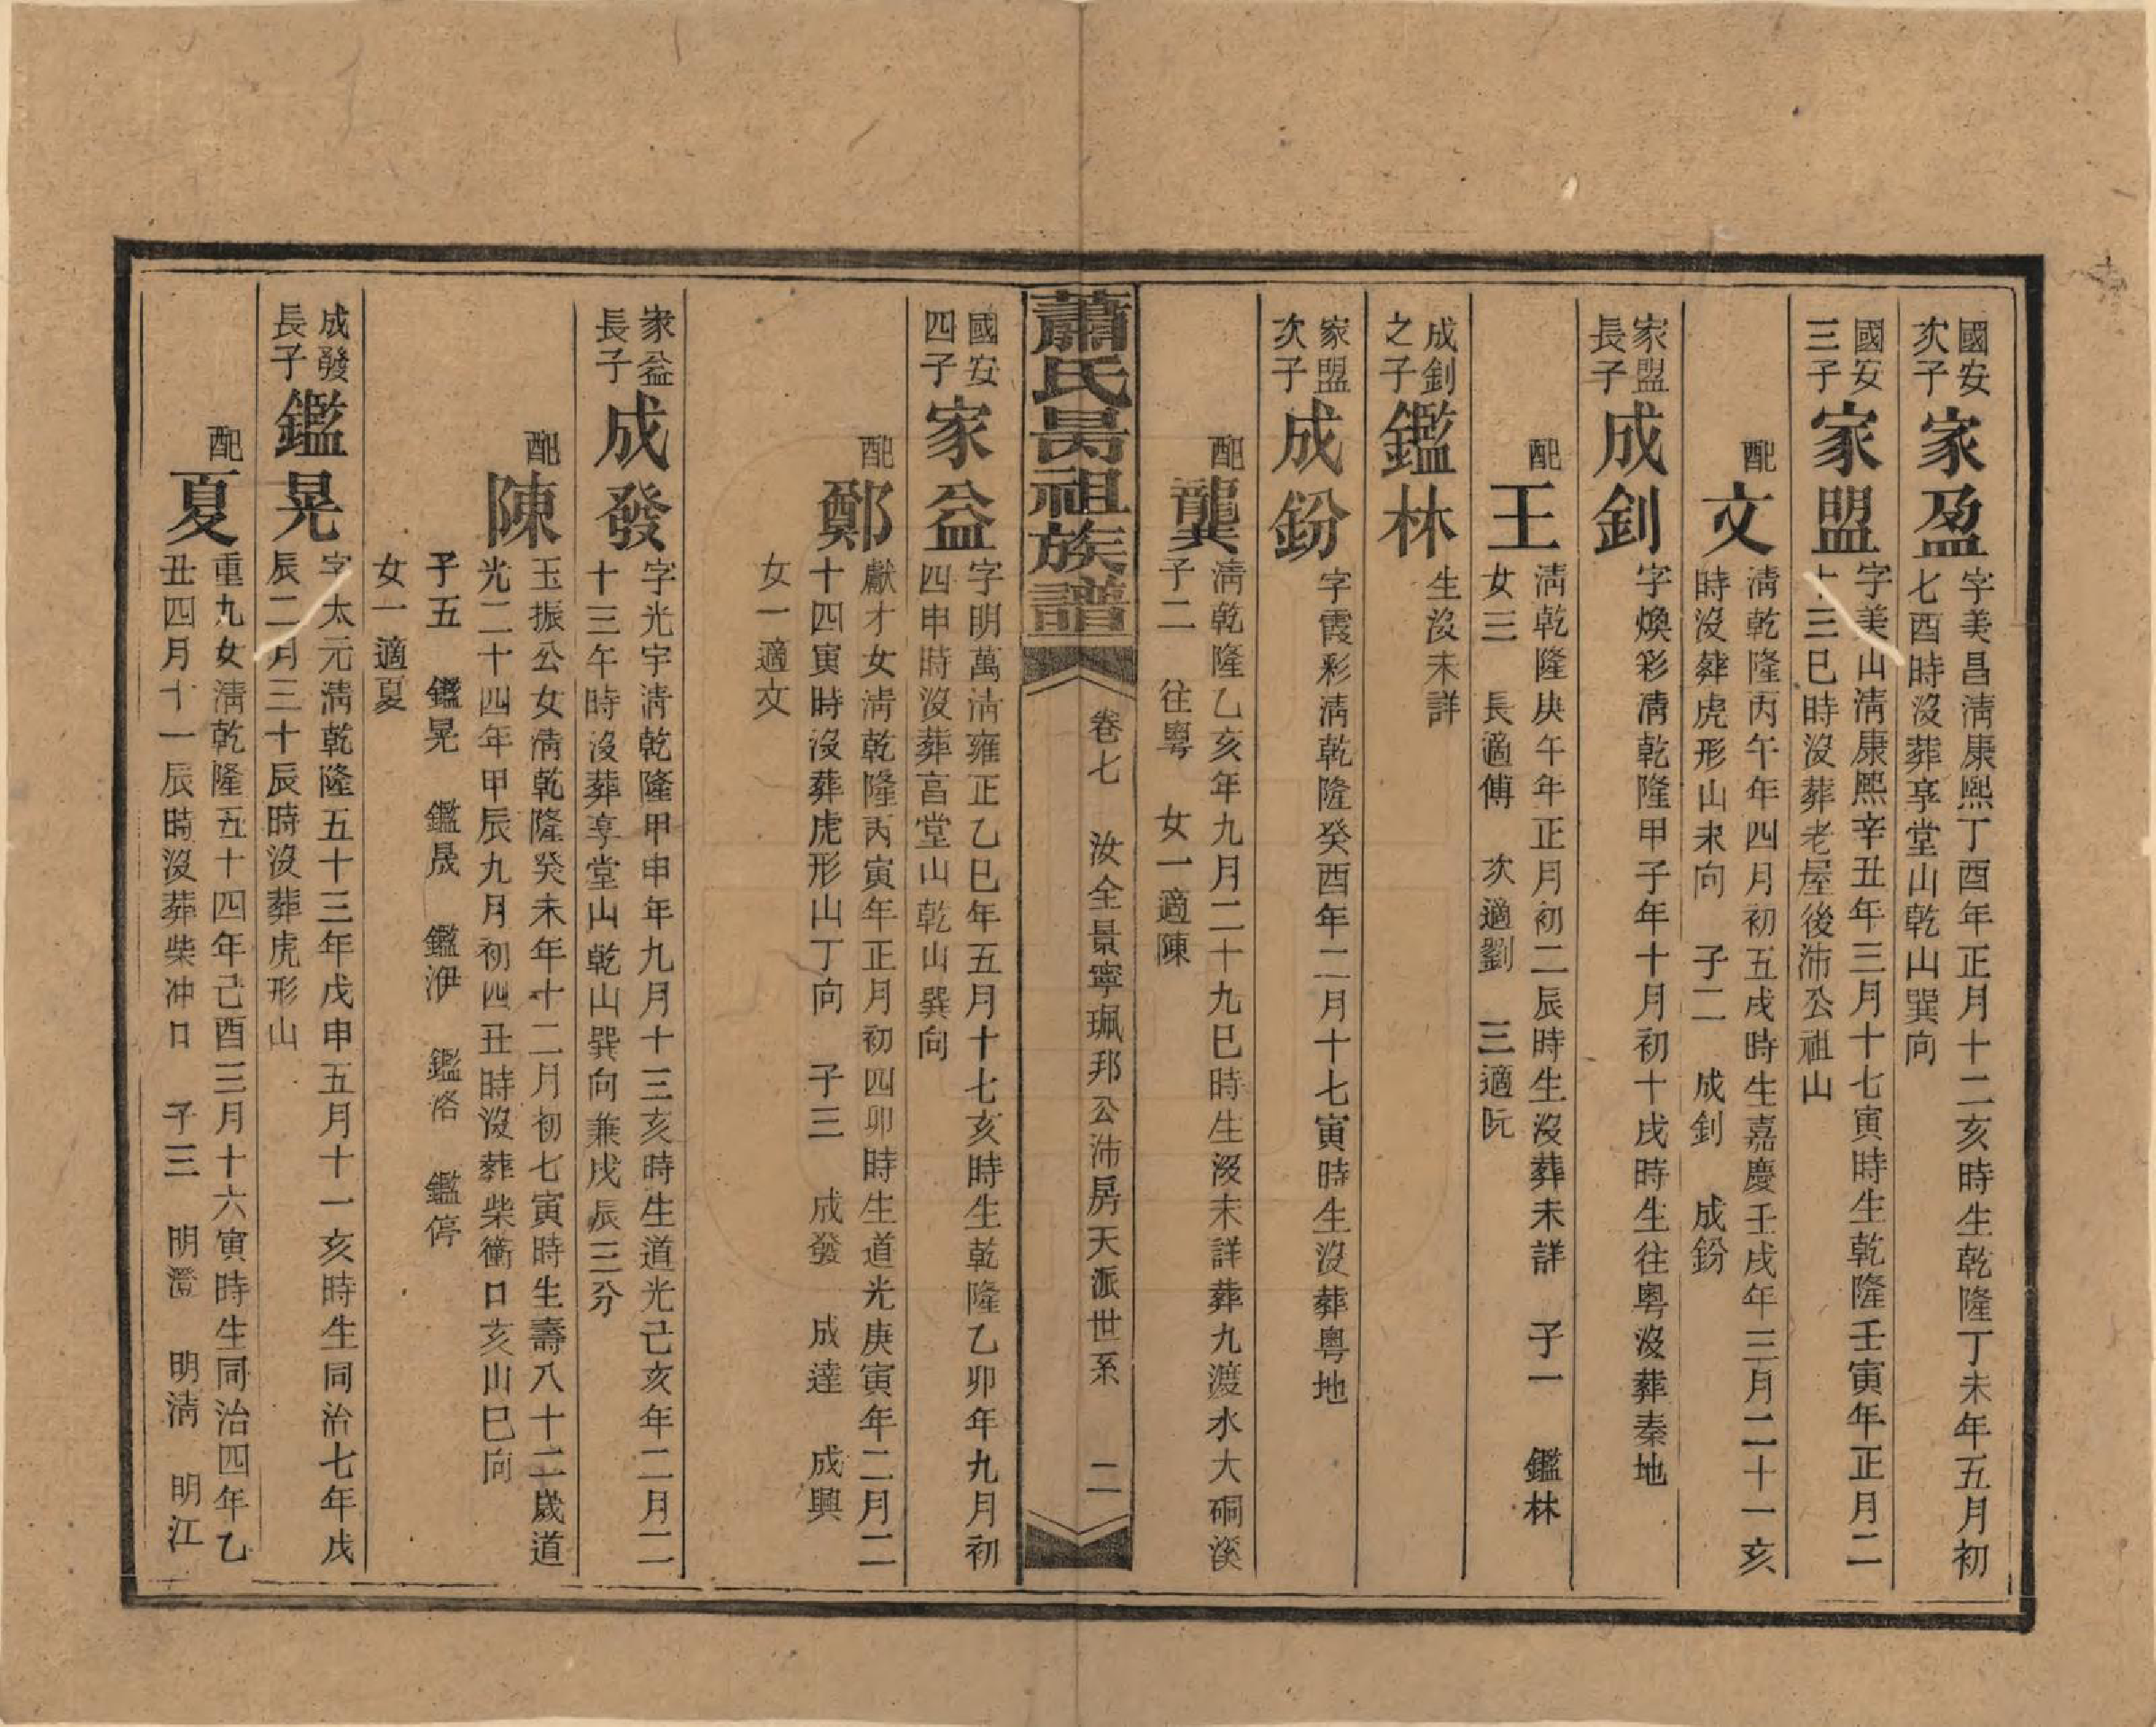 國安
次子
家盈
字美昌淸康熙丁酉年正月十二亥時生乾隆丁未年五月初
七酉時沒葬享堂山乾山巽向
國安
三子
家盟
字美山淸康熙辛丑年三月十七寅時生乾隆壬寅年正月二
十三巳時沒葬老屋後沛公祖山
配
文
淸乾隆丙午年四月初五戌時生嘉慶壬戌年三月二十一亥
時沒葬虎形山未向 子二 成釗 成鈖
家盟
長子
成釗
字煥彩淸乾隆甲子年十月初十戌時生往粵沒葬秦地
配
王
淸乾隆庚午年正月初二辰時生沒葬未詳 子一 鑑林
女三 長適傅 次適劉 三適阮
成釗
之子
鑑林
生沒未詳
家盟
次子
成鈖
字霞彩淸乾隆癸酉年二月十七寅時生沒葬粵地
配
龔
淸乾隆乙亥年九月二十九巳時生沒未詳葬九渡水大硐溪
子二 往粵 女一適陳
蕭氏昺祖族譜
卷七 汝全景寧珮邦公沛房天派世系 二
國安
四子
家益
字明萬淸雍正乙巳年五月十七亥時生乾隆乙卯年九月初
四申時沒葬亯堂山乾山巽向
配
鄭
獻才女淸乾隆丙寅年正月初四卯時生道光庚寅年二月二
十四寅時沒葬虎形山丁向 子三 成發 成達 成興
女一適文
家益
長子
成發
字光宇淸乾隆甲申年九月十三亥時生道光己亥年二月二
十三午時沒葬享堂山乾山巽向兼戌辰三分
配
陳
玉振公女淸乾隆癸未年十二月初七寅時生壽八十二歲道
光二十四年甲辰九月初四丑時沒葬柴衝口亥山巳向
子五 鑑晃 鑑晟 鑑洢 鑑洛 鑑停
女一適夏
成發
長子
鑑晃
字太元淸乾隆五十三年戊申五月十一亥時生同治七年戊
辰二月三十辰時沒葬虎形山
配
夏
重九女淸乾隆五十四年己酉三月十六寅時生同治四年乙
丑四月十一辰時沒葬柴冲口 子三 明灃 明淸 明江